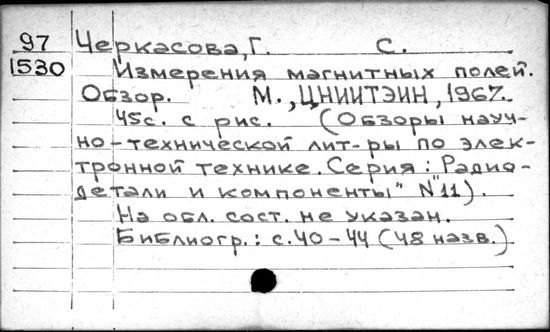 97 Черкасова, Г. С.
1530 Измерения магнитных полей.
Обзор. М., ЦНИИТЭИН, 1967.
45с. с рис. (Обзоры науч-
но-технической лит-ры по элек-
тронной технике. Серия: Радио-
детали и компоненты" №11).
На обл. сост. не указан.
Библиогр.: с.40-44 (48 назв.)